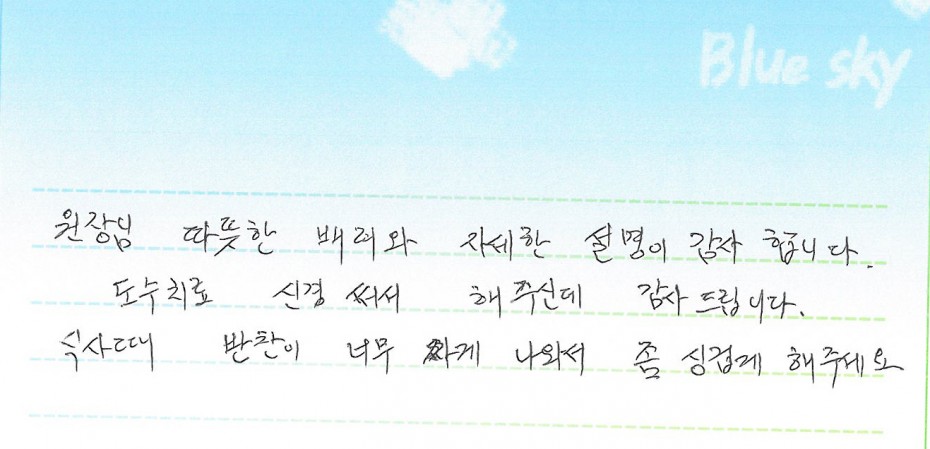 Blue sky
원장님 따뜻한 배려와 자세한 설명이 감사 합니다.
도수치료 신경 써서 해 주신데 감사 드립니다.
식사때 반찬이 너무 짜게 나와서 좀 싱겁게 해주세요